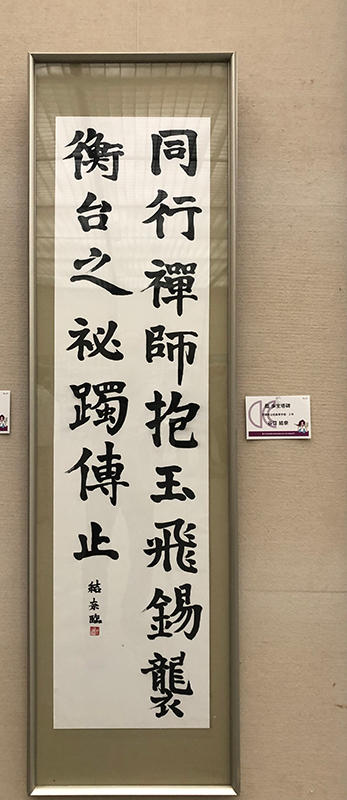 同行禪師抱玉飛錫襲
衡台之祕躅傳止
結奈臨
多宝塔碑